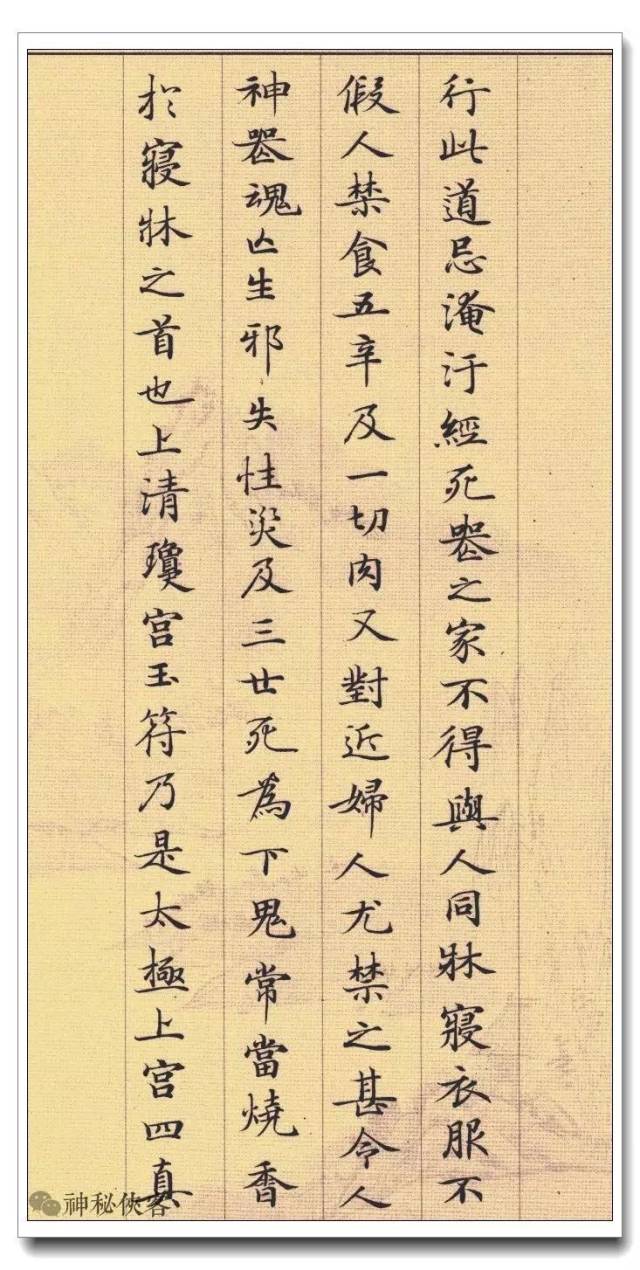 行此道忌淹汙經死丧之家不得與人同牀寢衣服不
假人禁食五辛及一切肉又對近婦人尤禁之甚令人
神丧魂亡生邪失性災及三世死為下鬼常當燒香
於寢牀之首也上清瓊宫玉符乃是太極上宫四真
神秘俠客